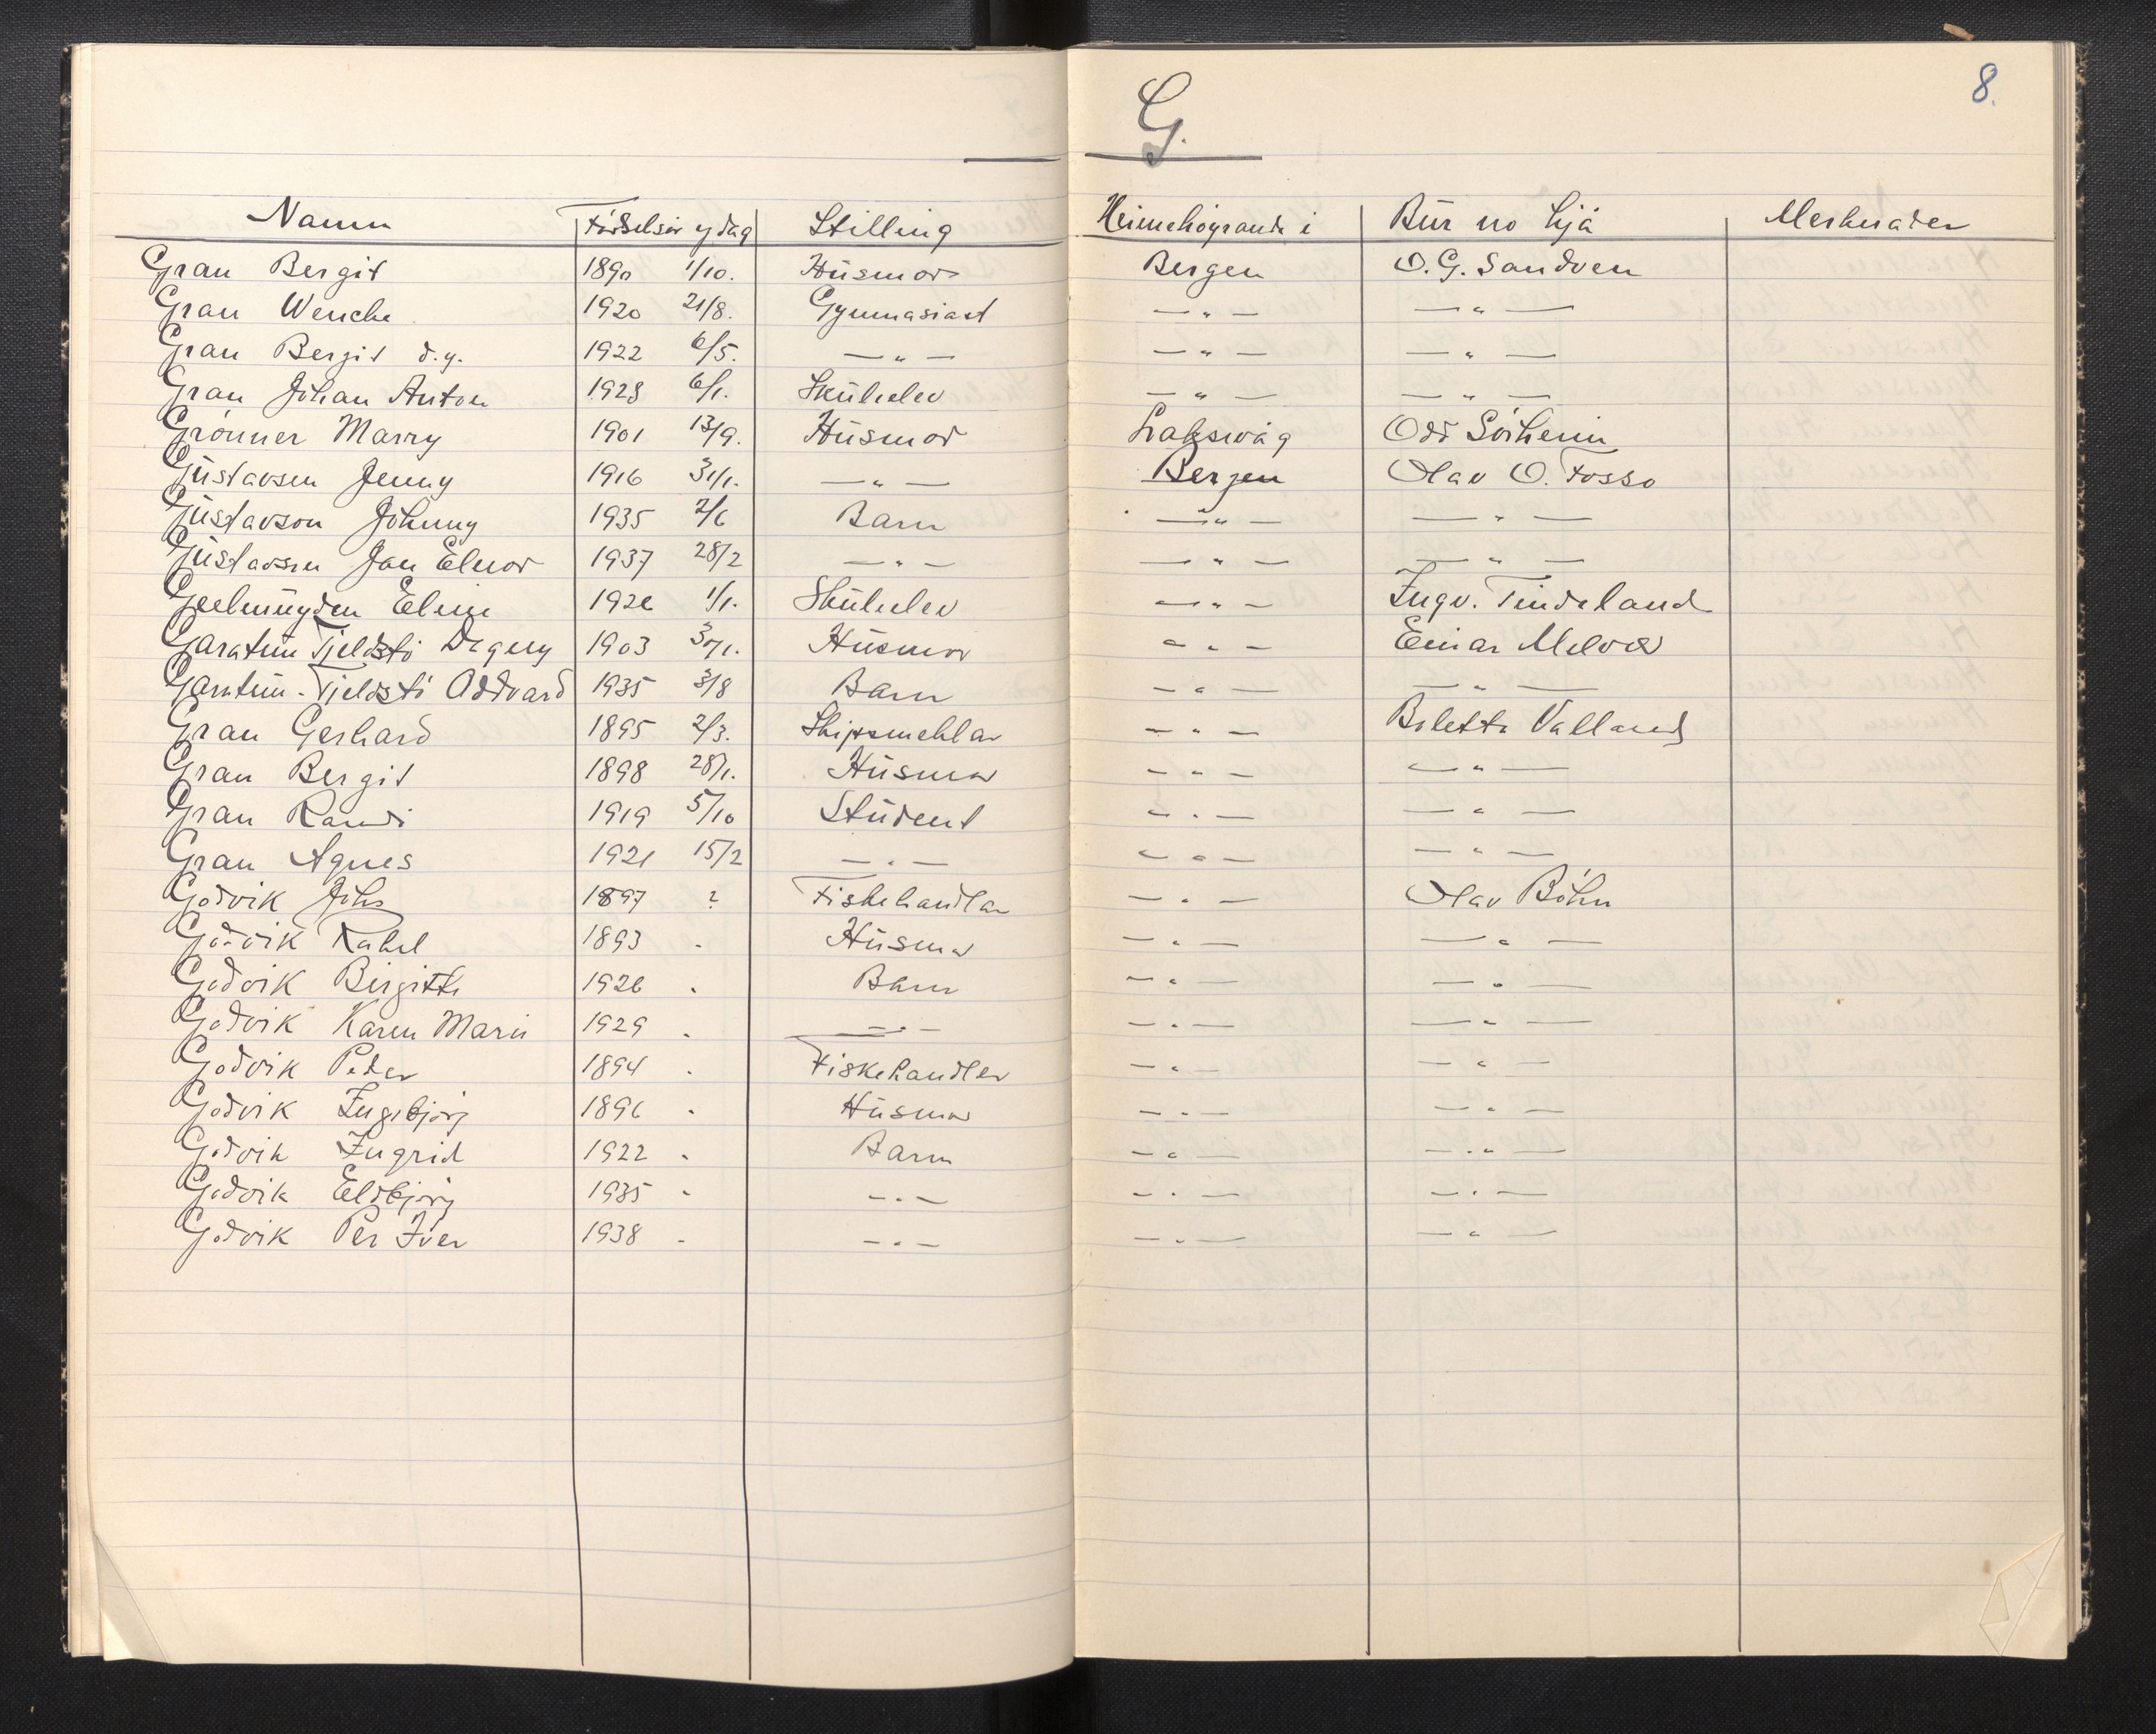 8.
G.
Namn Fødselsår og dag Stilling Heimehøyrande i Bur no hjå Merknader
Gran Bergit 1890 1/10. Husmor Bergen O. G. Sandven
Gran Wenche 1920 21/8. Gymnasiast — " — — " —
Gran Bergit d.y. 1922 6/5. — " — — " — — " —
Gran Johan Anton 1928 6/1. Skuleelev — " — — " —
Grønner Marry 1901 13/9. Husmor Laksevåg Odd Sörheim
Gustavsen Jenny 1916 31/1. — " — Bergen Olav O. Fosso
Gustavson Johnny 1935 2/6 Barn — " — — " —
Gustavsen Jan Elnor 1937 28/2 — " — — " — — " —
Geelmuyden Eline 1926 1/1. Skuleelev — " — Ingv. Tindeland
Garatun Tjeldstö Dagny 1903 30/1. Husmor — " — Einar Melvær
Garatun-Tjeldstö Oddvard 1935 3/8 Barn — " — — " —
Gran Gerhard 1895 2/3. Skipsmeklar — " — Boletta Valland
Gran Bergit 1898 28/1. Husmor — " — — " —
Gran Randi 1919 5/10 Student — " — — " —
Gran Agnes 1921 15/2 — " — — " — — " —
Godvik Johs 1897 ? Fiskehandlar — " — Olav Böhn
Godvik Rakel 1893 " Husmor — " — — " —
Godvik Birgitte 1926 " Barn — " — — " —
Godvik Karen Marie 1929 " — " — — " — — " —
Godvik Peder 1894 " Fiskehandler — " — — " —
Godvik Ingebjørg 1896 " Husmor — " — — " —
Godvik Ingrid 1922 " Barn — " — — " —
Godvik Eldbjørg 1935 " — " — — " — — " —
Godvik Per Iver 1938 " — " — — " — — " —